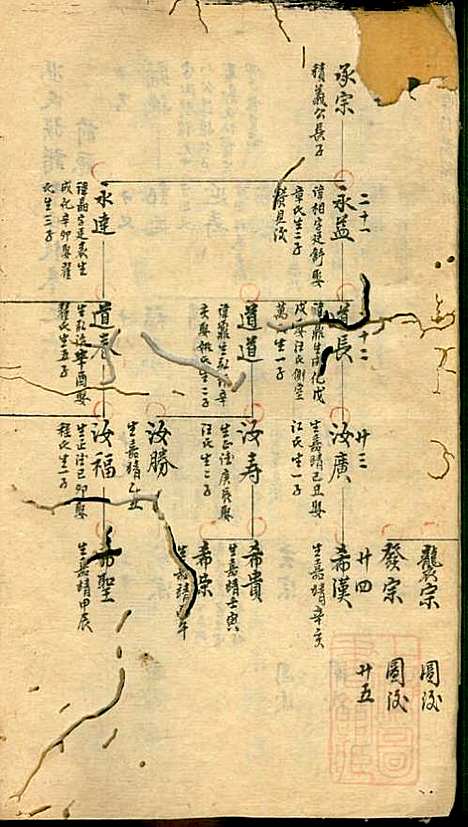 承宗
積義公長子
二十一
永益
諱相字廷舒娶
章氏生二子
廣且後
永達
諱晶字廷表生
成化辛卯娶翟
氏生二子
十二
道長
諱鼎生成化戊
戌娶汪氏側室
萬氏生一子
道道
諱鼐生弘治辛
亥娶姚氏生二子
道春
生弘治辛酉娶
翟氏生五子
廿三
汝廣
生嘉靖己丑娶
汪氏生一子
汝寿
生正德庚辰娶
汪氏生二子
汝勝
生嘉靖乙丑
汝福
生正德己卯娶
程氏生一子
龔宗
圖後
發宗
圖後
廿四
廿五
希漢
生嘉靖辛亥
希貴
生嘉靖壬寅
希宗
生嘉靖
希聖
生嘉靖甲辰